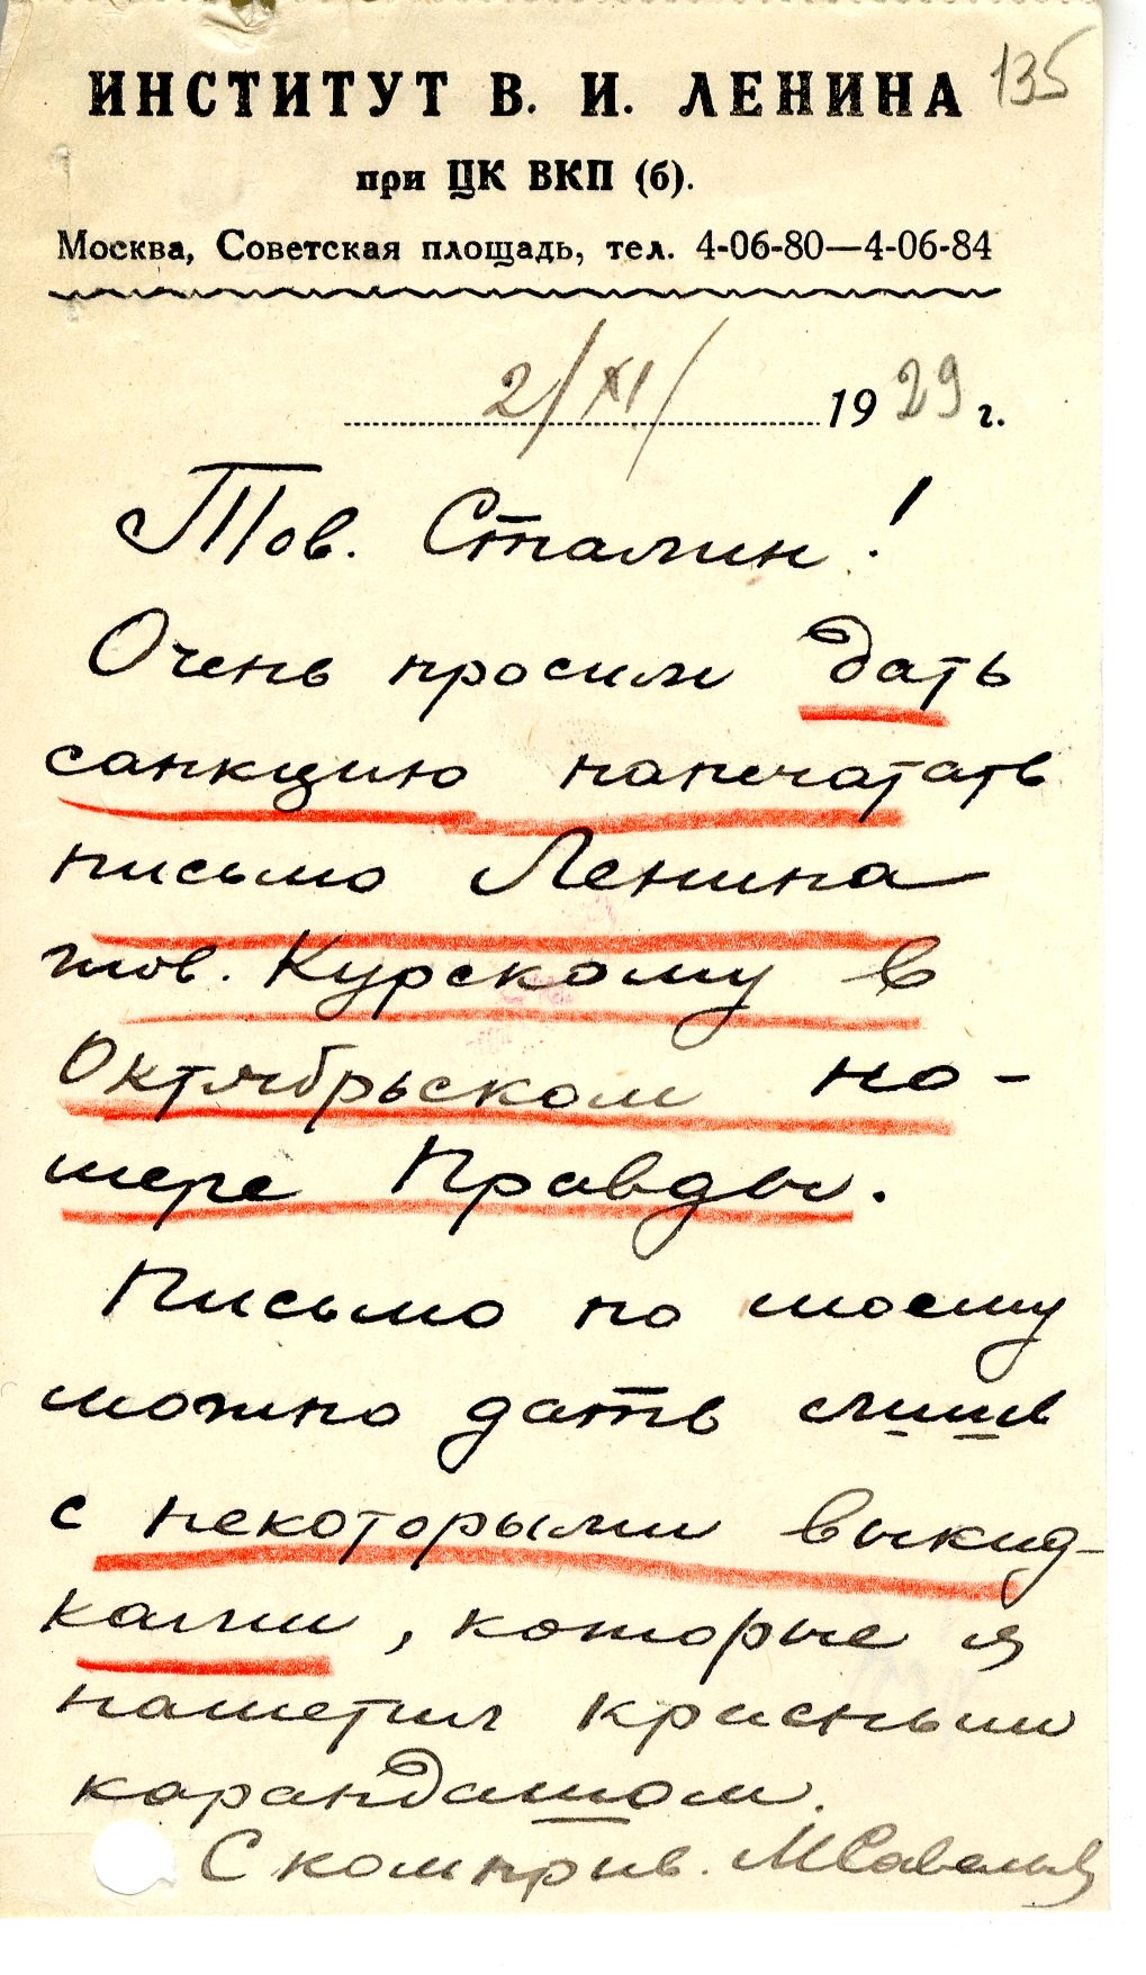 135
ИНСТИТУТ В. И. ЛЕНИНА
при ЦК ВКП (б).
Москва, Советская площадь, тел. 4-06-80—4-06-84
2/XI/ 1929 г.
Тов. Сталин!
Очень просили дать
санкцию напечатать
письмо Ленина
тов. Курскому в
Октябрьском но-
мере Правды.
Письмо по моему
можно дать лишь
с некоторыми выкид-
ками, которые я
наметил красным
карандашом.
С комприв. МСавельев